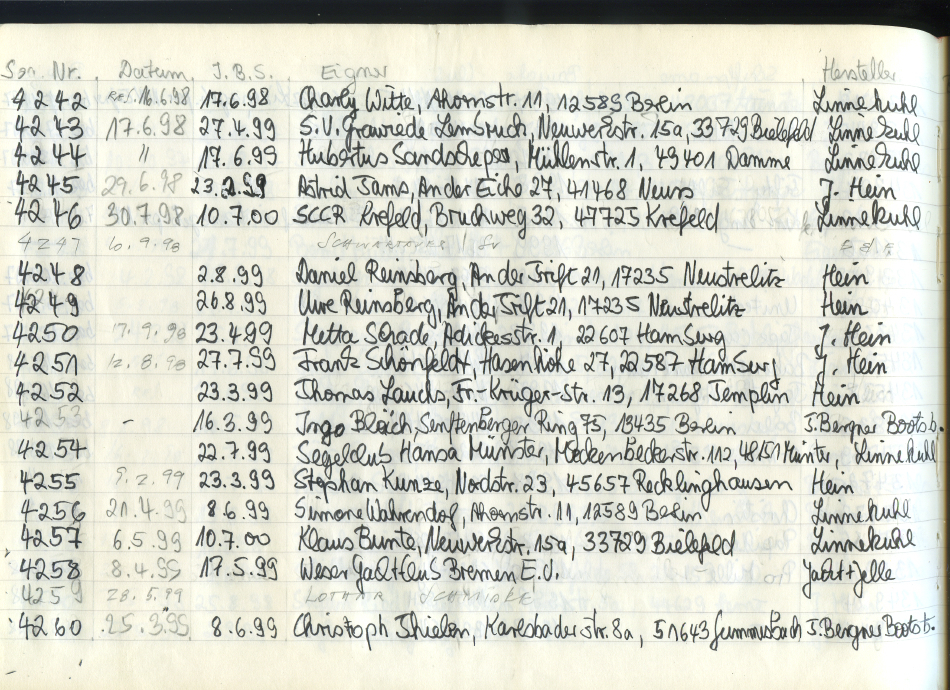 Ser. Nr. Datum J.B.S. Eigner Hersteller
4242 Res. 16.6.98 17.6.98 Charly Witte, Ahornstr. 11, 12589 Berlin Linnekuhl
4243 17.6.98 27.4.99 S.V. Grawiede Lembruch, Neuwerkstr. 15a, 33729 Bielefeld Linnekuhl
4244 " 17.6.99 Hubertus Sandscheper, Mühlenstr. 1, 49401 Damme Linnekuhl
4245 29.6.98 23.2.99 Astrid Jams, An der Eiche 27, 41468 Neuss J. Hein
4246 30.7.98 10.7.00 SCCR Krefeld, Bruchweg 32, 47725 Krefeld Linnekuhl
4247 6.9.98
4248 2.8.99 Daniel Reinsberg, An der Trift 21, 17235 Neustrelitz Hein
4249 26.8.99 Uwe Reinsberg, An der Trift 21, 17235 Neustrelitz Hein
4250 17.9.98 23.4.99 Metta Schade, 1, 22607 Hamburg J. Hein
4251 12.8.98 27.7.99 Frantz Schönfeldt, Hasenhöhe 27, 22587 Hamburg J. Hein
4252 23.3.99 Thomas Lauchs, Fr.-Krüger-Str. 13, 17268 Templin Hein
4253 - 16.3.99 Ingo Bleich, Senftenberger Ring 75, 13435 Berlin J. Bergner Bootsb.
4254 22.7.99 Segelclub Hansa Münster, Meckenbeckerstr. 112, 48151 Münster, Linnekuhl
4255 9.2.99 23.3.99 Stephan Kunze, Nordstr. 23, 45657 Recklinghausen Hein
4256 21.4.99 8.6.99 Simone Wahrendorf, Ahornstr. 11, 12589 Berlin Linnekuhl
4257 6.5.99 10.7.00 Klaus Bunte, Neuwerkstr. 15a, 33729 Bielefeld Linnekuhl
4258 8.4.99 17.5.99 Weser Yachtclub Bremen E.V. Jacht+Jolle
4259 28.5.99 Lothar Schmidke
4260 25.3.99 8.6.99 Christoph Thielen, Karlsbader Str. 8a, 51643 Gummersbach J. Bergner Bootsb.